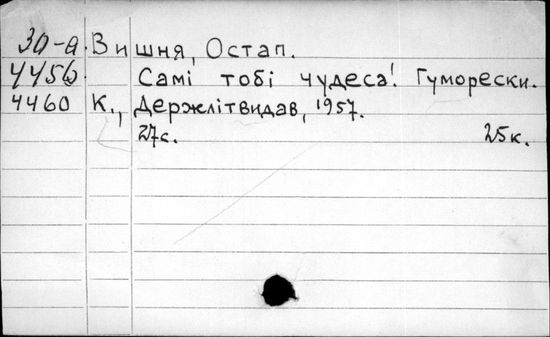 30-а. Вишня, Остап.
4456. Самі тобі чудеса! Гуморески.
4460 К., Держлітвидав, 1957.
27с. 25к.